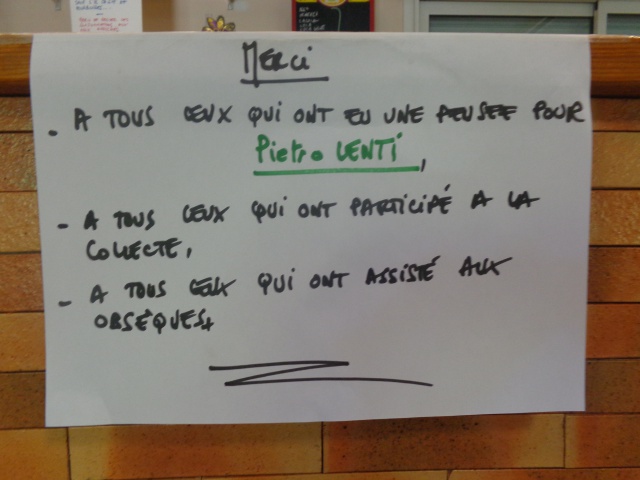 Merci
- A TOUS CEUX QUI ONT EU UNE PENSEE POUR
Pietro LENTI,
- A TOUS CEUX QUI ONT PARTICIPÉ A LA
COLLECTE,
- A TOUS CEUX QUI ONT ASSISTÉ AUX
OBSÉQUES.